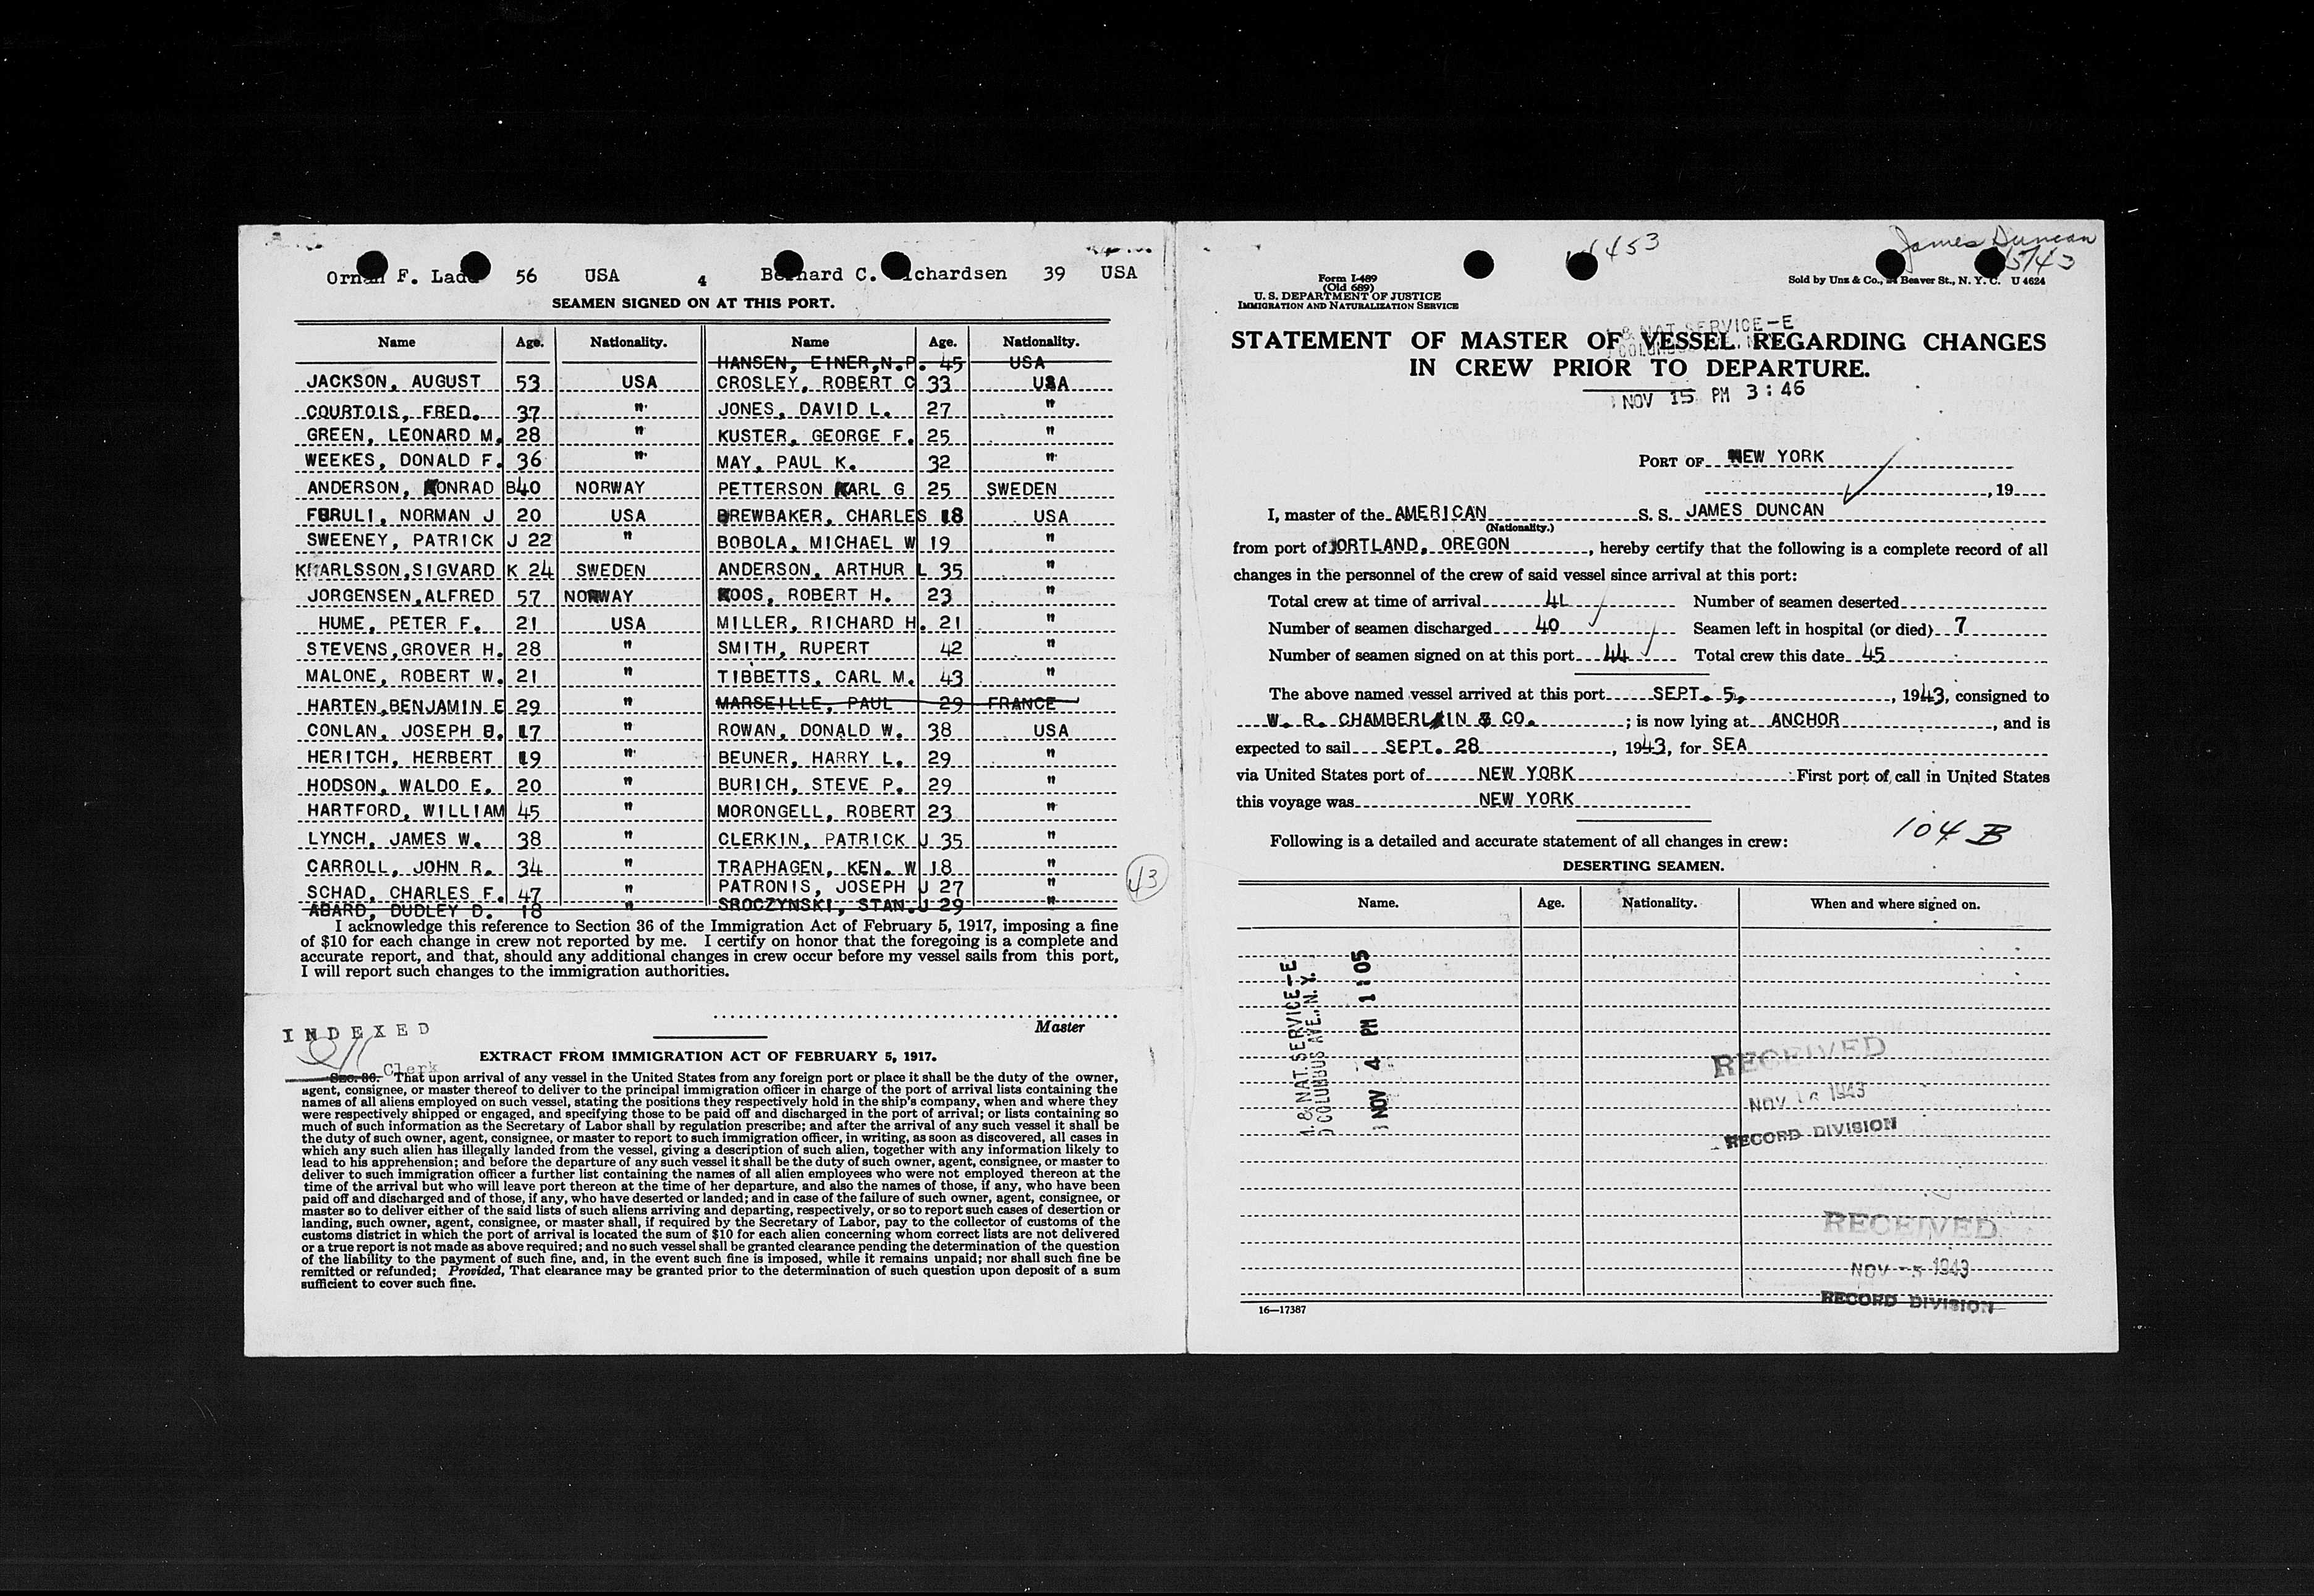 Ornan F. Ladd 56 USA 4 Bernard C. Richardsen 39 USA
SEAMEN SIGNED ON AT THIS PORT.
Name Age. Nationality. Name Age. Nationality.
HANSEN, EINER,N.P. 45 USA
JACKSON, AUGUST 53 USA CROSLEY, ROBERT C 33 USA
COURTOIS, FRED. 37 " JONES, DAVID L. 27 "
GREEN, LEONARD M. 28 " KUSTER, GEORGE F. 25 "
WEEKES, DONALD F. 36 " MAY, PAUL K. 32 "
ANDERSON, KONRAD B 40 NORWAY PETTERSON KARL G 25 SWEDEN
FURULI, NORMAN J 20 USA BREWBAKER, CHARLES 18 USA
SWEENEY, PATRICK J 22 " BOBOLA, MICHAEL W 19 "
KARLSSON,SIGVARD K 24 SWEDEN ANDERSON, ARTHUR L 35 "
JORGENSEN,ALFRED 57 NORWAY KOOS, ROBERT H. 23 "
HUME, PETER F. 21 USA MILLER, RICHARD H. 21 "
STEVENS,GROVER H. 28 " SMITH, RUPERT 42 "
MALONE, ROBERT W. 21 " TIBBETTS, CARL M. 43 "
HARTEN,BENJAMIN E 29 " MARSEILLE, PAUL 29 FRANCE
CONLAN, JOSEPH 17 " ROWAN, DONALD W. 38 USA
HERITCH, HERBERT 19 " BEUNER, HARRY L. 29 "
HODSON, WALDO E. 20 " BURICH, STEVE P. 29 "
HARTFORD, WILLIAM 45 " MORONGELL, ROBERT 23 "
LYNCH, JAMES W. 38 " CLERKIN, PATRICK J 35 "
CARROLL, JOHN R. 34 " TRAPHAGEN, KEN. W 18 "
SCHAD, CHARLES F. 47 " PATRONIS, JOSEPH J 27 "
ABARD, DUDLEY D. 18 " SROCZYNSKI, STAN.J 29 "
43
I acknowledge this reference to Section 36 of the Immigration Act of February 5, 1917, imposing a fine
of $10 for each change in crew not reported by me. I certify on honor that the foregoing is a complete and
accurate report, and that, should any additional changes in crew occur before my vessel sails from this port,
I will report such changes to the immigration authorities.
Master
INDEXED
Clerk
EXTRACT FROM IMMIGRATION ACT OF FEBRUARY 5, 1917.
SEC. 36. That upon arrival of any vessel in the United States from any foreign port or place it shall be the duty of the owner,
agent, consignee, or master thereof to deliver to the principal immigration officer in charge of the port of arrival lists containing the
names of all aliens employed on such vessel, stating the positions they respectively hold in the ship's company, when and where they
were respectively shipped or engaged, and specifying those to be paid off and discharged in the port of arrival; or lists containing so
much of such information as the Secretary of Labor shall by regulation prescribe; and after the arrival of any such vessel it shall be
the duty of such owner, agent, consignee, or master to report to such immigration officer, in writing, as soon as discovered, all cases in
which any such alien has illegally landed from the vessel, giving a description of such alien, together with any information likely to
lead to his apprehension; and before the departure of any such vessel it shall be the duty of such owner, agent, consignee, or master to
deliver to such immigration officer a further list containing the names of all alien employees who were not employed thereon at the
time of the arrival but who will leave port thereon at the time of her departure, and also the names of those, if any, who have been
paid off and discharged and of those, if any, who have deserted or landed; and in case of the failure of such owner, agent, consignee, or
master so to deliver either of the said lists of such aliens arriving and departing, respectively, or so to report such cases of desertion or
landing, such owner, agent, consignee, or master shall, if required by the Secretary of Labor, pay to the collector of customs of the
customs district in which the port of arrival is located the sum of $10 for each alien concerning whom correct lists are not delivered
or a true report is not made as above required; and no such vessel shall be granted clearance pending the determination of the question
of the liability to the payment of such fine, and, in the event such fine is imposed, while it remains unpaid; nor shall such fine be
remitted or refunded; Provided, That clearance may be granted prior to the determination of such question upon deposit of a sum
sufficient to cover such fine.
James Duncan
Form I-489
(Old 689)
U. S. DEPARTMENT OF JUSTICE
IMMIGRATION AND NATURALIZATION SERVICE
Sold by Unz & Co., 24 Beaver St., N. Y. C. U 4624
& NAT. SERVICE-E
STATEMENT OF MASTER OF VESSEL REGARDING CHANGES
IN CREW PRIOR TO DEPARTURE.
NOV 15 PM 3:46
PORT OF NEW YORK
, 19
I, master of the AMERICAN S. S. JAMES DUNCAN
(Nationality.)
from port of PORTLAND, OREGON, hereby certify that the following is a complete record of all
changes in the personnel of the crew of said vessel since arrival at this port:
Total crew at time of arrival 41 Number of seamen deserted
Number of seamen discharged 40 Seamen left in hospital (or died) 7
Number of seamen signed on at this port 44 Total crew this date 45
The above named vessel arrived at this port SEPT. 5, 1943, consigned to
W. R. CHAMBERLAIN & CO. ; is now lying at ANCHOR, and is
expected to sail SEPT. 28, 1943, for SEA
via United States port of NEW YORK First port of call in United States
this voyage was NEW YORK
104 B
Following is a detailed and accurate statement of all changes in crew:
DESERTING SEAMEN.
Name. Age. Nationality. When and where signed on.
I. & NAT. SERVICE-E
COLUMBUS AVE., N. Y.
NOV 4 PM 1:05
RECEIVED
NOV 16 1943
RECORD DIVISION
RECEIVED
NOV -5 1943
RECORD DIVISION
16—17387